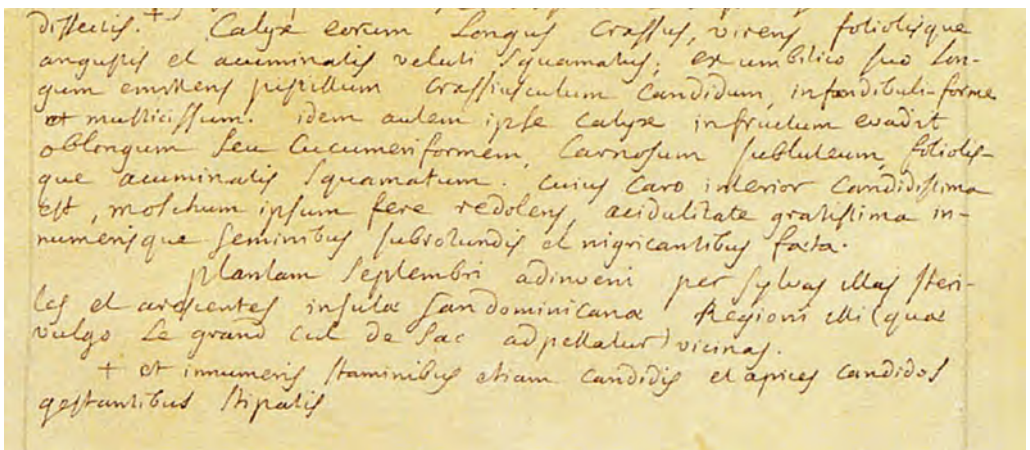 dissectis. + Calyx eorum Longus Crassus, virens foliolisque
angustis et acuminatis veluti squamatus; ex umbilico suo Lon-
gum emittens pistillum Crassiusculum Candidum, infondibuli-forme
et mullicissum. idem autem ipse Calyx infructum evadit
oblongum seu Cucumeriformem, Carnosum subluteum, foliolis-
que acuminatis squamatum. Cuius Caro interior Candidissima
est, moschum ipsum fere redolens, aciduli­tate gratissima in-
numerisque seminibus subrotundis et nigricantibus fœta.
plantam Septembri adinveni per sylvas illas steri-
les et ardentes insulæ sandominicanæ Regioni illi (quæ
vulgo Le grand Cul de Sac adpellatur) vicinas.
+ et innumeris staminibus etiam Candidis et apices Candidos
gestantibus stipatis